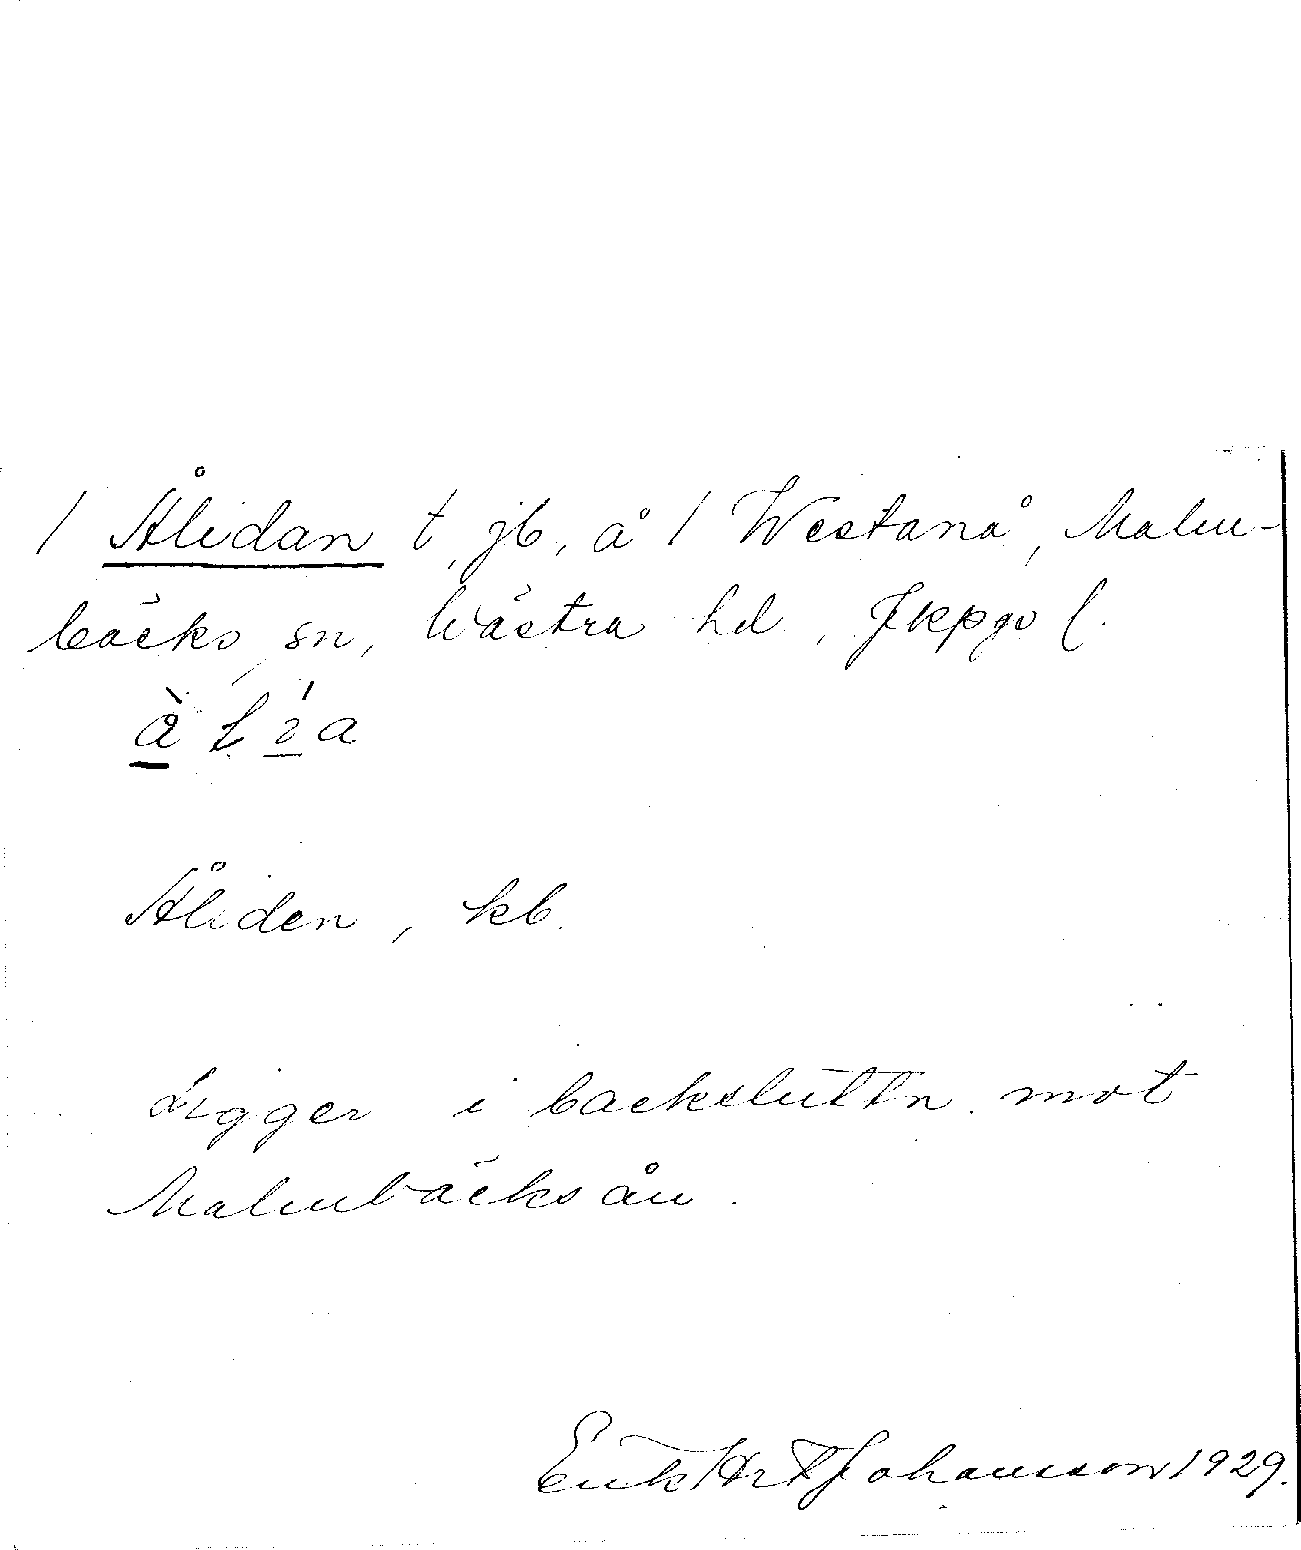 / Ålidan t, jb, å / Westanå, Malm-
bäcks sn, Västra hd., Jkpgs l.
Åliden, kb.
Ligger i backsluttn. mot
Malmbäcksån.
Erik Johansson 1929.